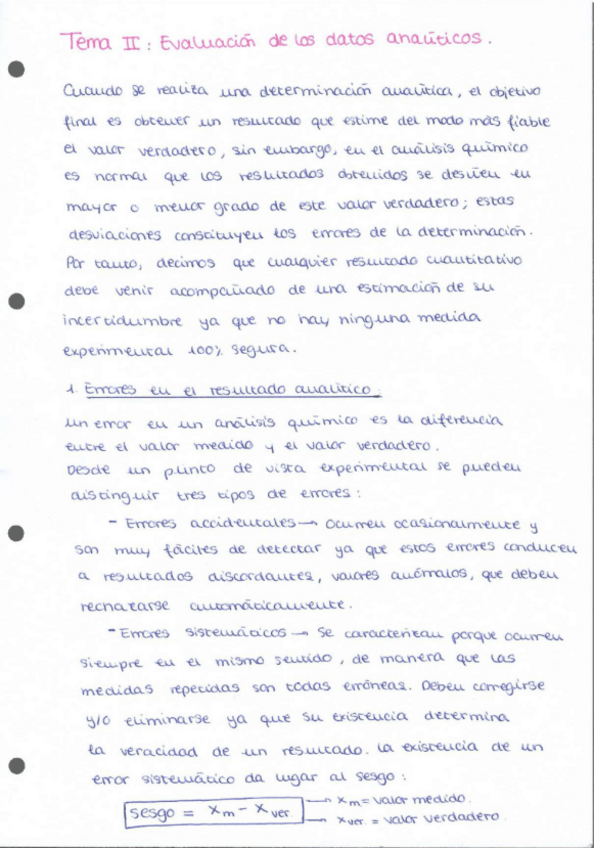 Tema II: Evaluación de los datos analíticos.
Cuando se realiza una determinación analítica, el objetivo
final es obtener un resultado que estime del modo más fiable
el valor verdadero, sin embargo, en el análisis químico
es normal que los resultados obtenidos se desvíen en
mayor o menor grado de este valor verdadero; estas
desviaciones constituyen los errores de la determinación.
Por tanto, decimos que cualquier resultado cuantitativo
debe venir acompañado de una estimación de su
incertidumbre ya que no hay ninguna medida
experimental 100% segura.
1. Errores en el resultado analítico.
Un error en un análisis químico es la diferencia
entre el valor medido y el valor verdadero.
Desde un punto de vista experimental se pueden
distinguir tres tipos de errores:
- Errores accidentales → Ocurren ocasionalmente y
son muy fáciles de detectar ya que estos errores conducen
a resultados discordantes, valores anómalos, que deben
rechazarse automáticamente.
- Errores sistemáticos → Se caracterizan porque ocurren
siempre en el mismo sentido, de manera que las
medidas repetidas son todas erróneas. Deben corregirse
y/o eliminarse ya que su existencia determina
la veracidad de un resultado. La existencia de un
error sistemático da lugar al sesgo:
sesgo = xm - xver. → xm = valor medido.
→ xver. = valor verdadero.